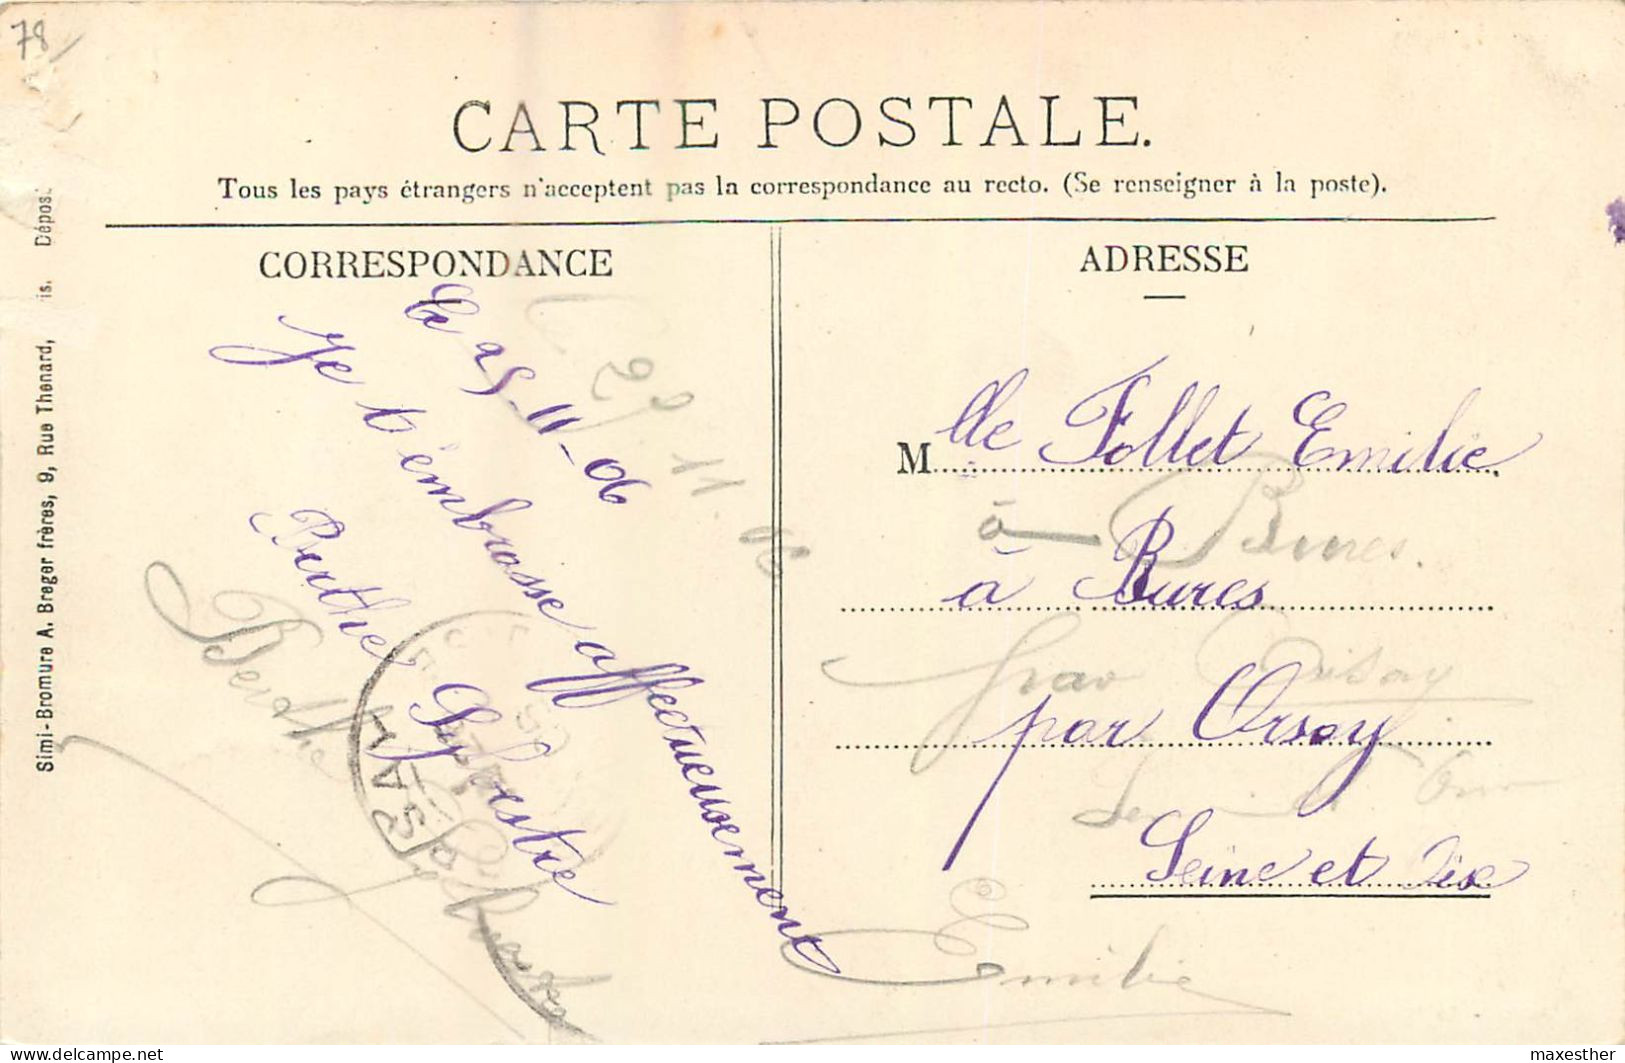 78
CARTE POSTALE.
Tous les pays étrangers n'acceptent pas la correspondance au recto. (Se renseigner à la poste).
CORRESPONDANCE
Le 25-11-06
Je t'embrasse affectueusement
Berthe Sylvestre
Le 25 11 06
Berthe
ADRESSE
Mlle Follet Emilie
à Bures
par Orsay
Seine et Oise
à Bures.
par Orsay
Emilie
Simi-Bromure A. Breger frères, 9, Rue Thenard, is. Dépos.
maxesther
delcampe.net